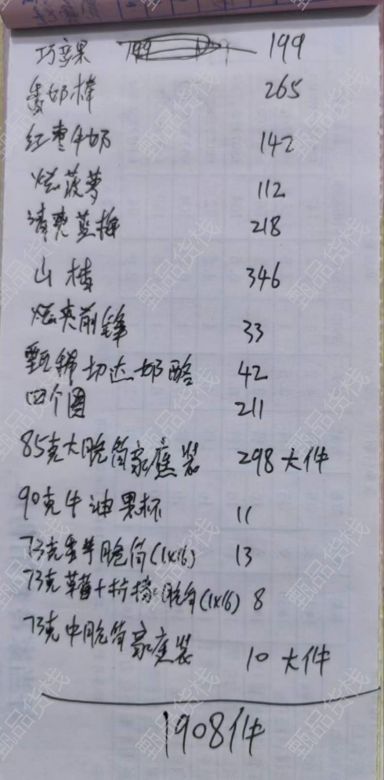 199
265
红枣牛奶 142
炫菠萝 112
清爽蓝梅 218
山楂 346
33
甄稀切达奶酪 42
四个圈 211
85克大脆筒家庭装 298大件
90克牛油果杯 11
73克香草脆筒(1x16) 13
73克草莓+柠檬脆筒(1x16) 8
73克中脆筒家庭装
10大件
1908件
甄品货栈